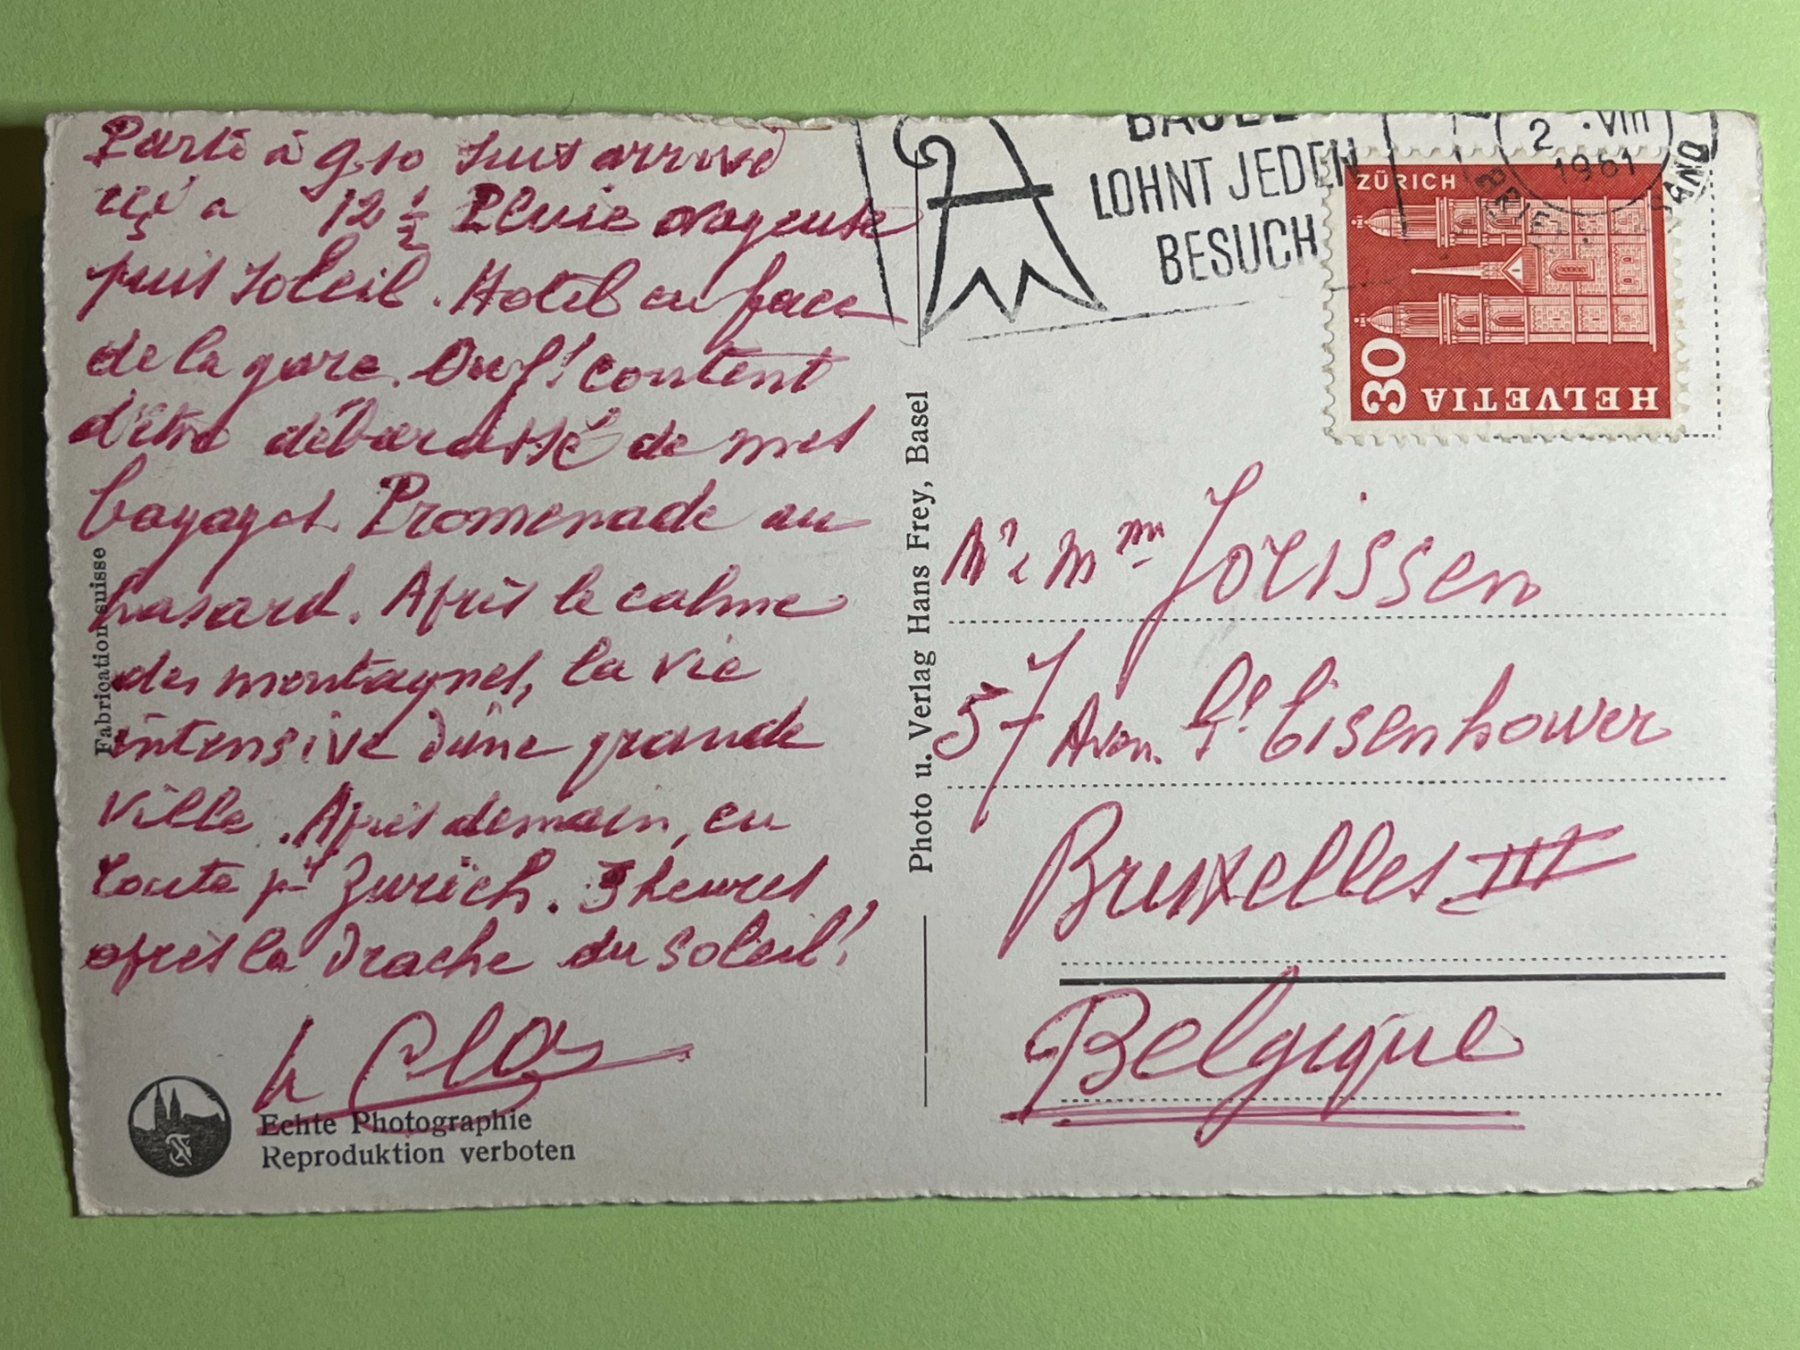 Parti à 9.10 suis arrivé
ici à 12 ½ Pluie orageuse
puis soleil. Hotel en face
de la gare. Ouf! content
d'être débarassé de mes
bagages. Promenade au
hasard. Après le calme
des montagnes, la vie
intensive d'une grande
ville. Après demain, en
route pr Zurich. 3 heures
après la drache du soleil!
Fabrication suisse
Echte Photographie
Reproduktion verboten
Photo u. Verlag Hans Frey, Basel
BASEL
LOHNT JEDEN
BESUCH
2 .VIII
1961
ZÜRICH
30
HELVETIA
Mr & Mme Jorissen
57 Aven. Gl Eisenhower
Bruxelles III
Belgique